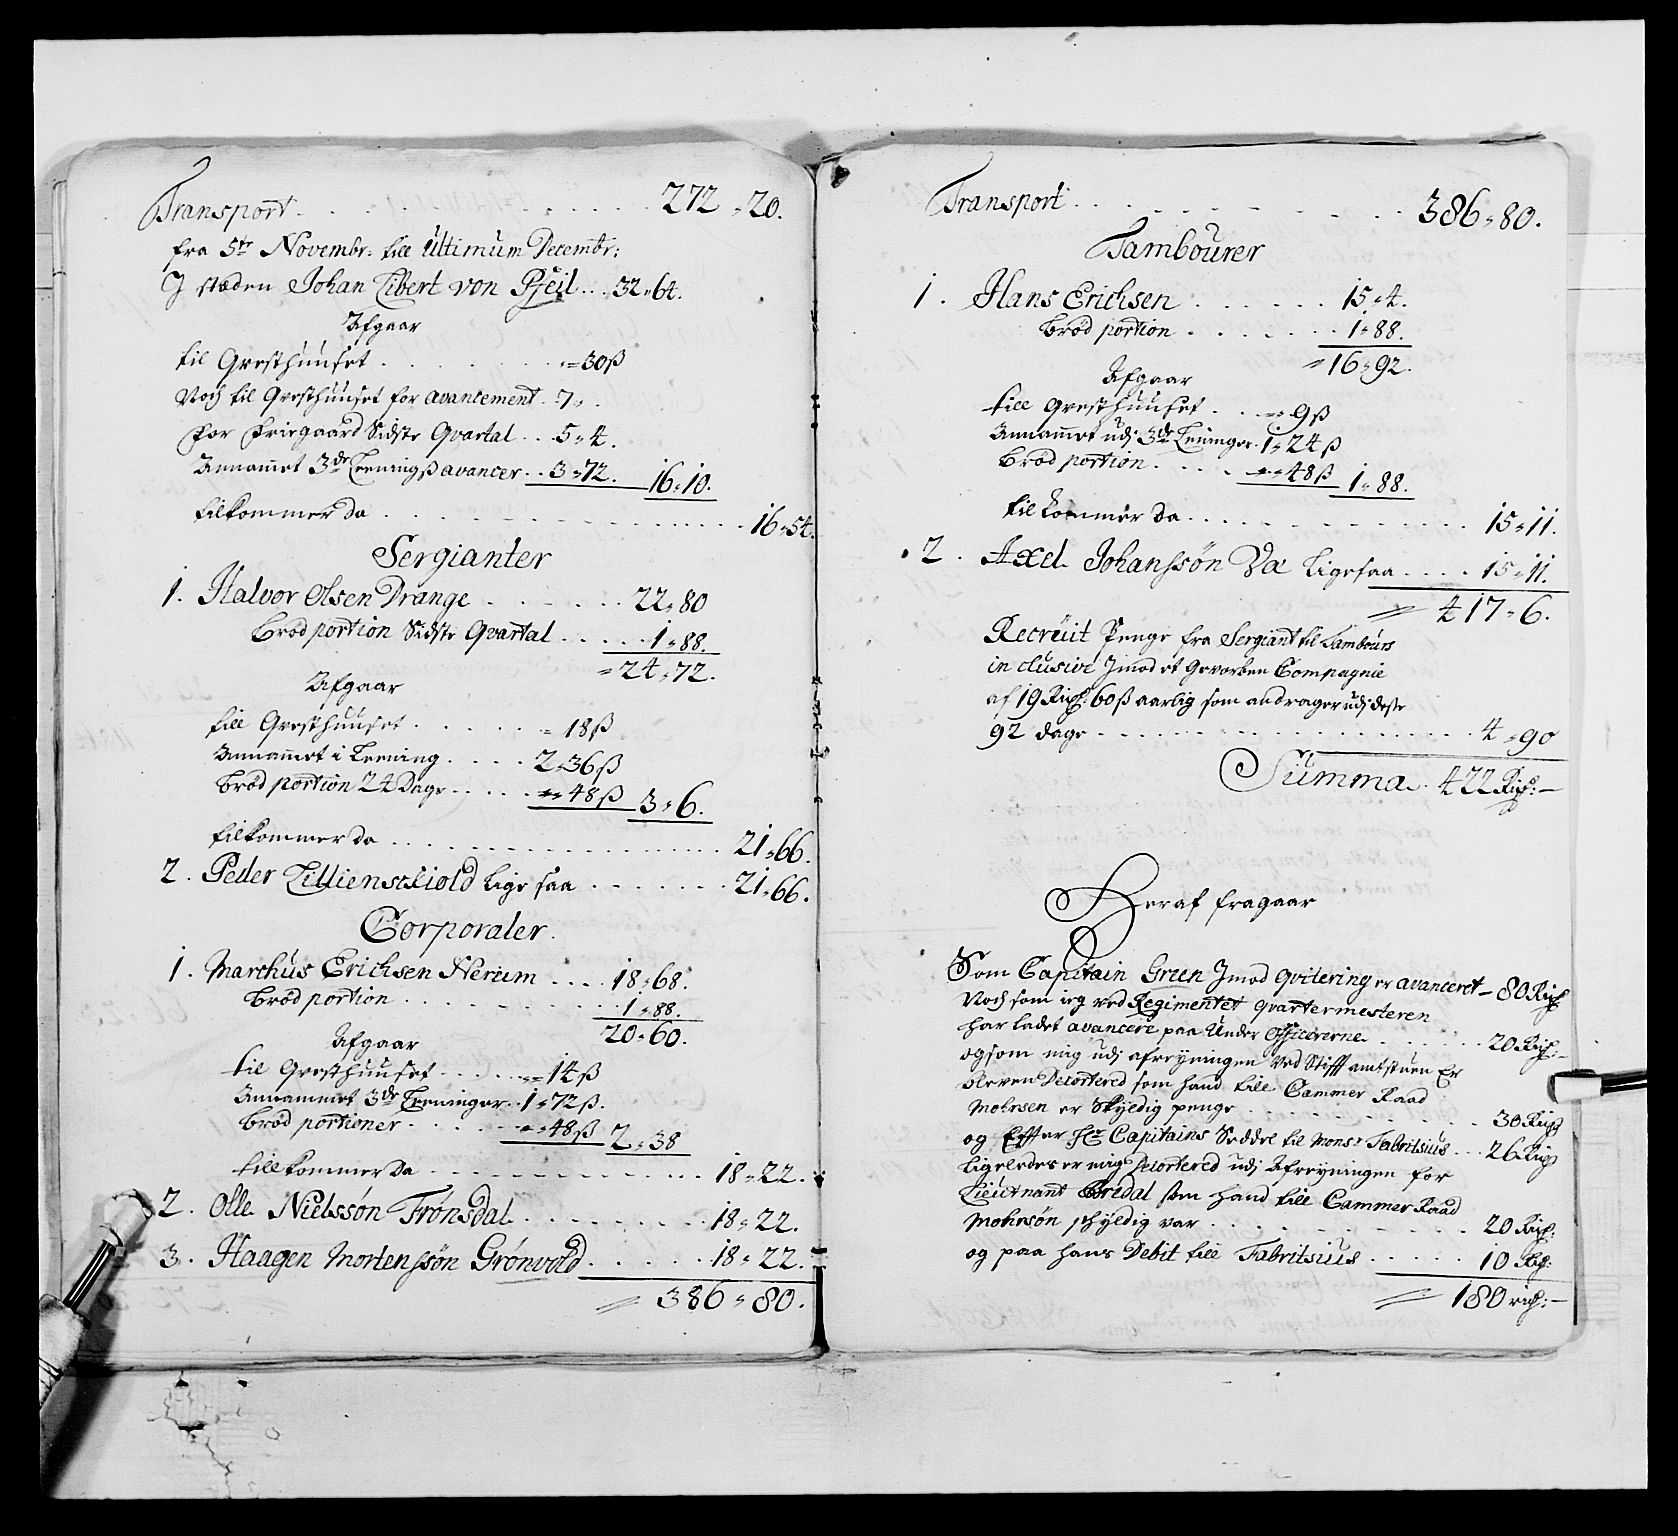 Transport . . . . . . . . . . 272 " 20.
fra 5te Novembr: till ultimum Decembr:
J stæden Johan Libert von Pfeil . . 32 " 64.
Afgaar
til Qvesthuuset . . . . . . . "=30ß
Noch til Qvesthuuset for avancement . 7 " .
For Priegaard Sidste Qvartal . . 5 " 4.
Annammet 3de Leeningß avancer . . 3 " 72. 16 " 10.
tilkommer da . . . . . . . . . . . . 16 " 54.
Sergianter
1. Halvor Olsen Drange . . . . . . 22 " 80
Brød portion Sidste Qvartal . . . . . 1 " 88.
= 24 " 72.
Afgaar
till Qvesthuuset . . . . . . = 18ß
Annammet i Leening . . . . 2 " 36ß
Brød portion 24 Dage . . . . . "" 48ß 3 " 6.
tilkommer da . . . . . . . . . . . . . . 21 " 66.
2. Peder Lillienschiold lige saa . . . . . . . 21 " 66.
Corporaler.
1. Marchus Erichsen Nerium . . . . 18 " 68.
Brød portion . . . . . . . . 1 " 88.
20 " 60.
Afgaar
til Qvesthuuset . . . . . "= 14ß
Annammet 3de Leeninger . . 1 " 72ß.
Brød portioner . . . . . . "" 48ß 2 " 38
till kommer da . . . . . . . . . . . . 18 " 22.
2. Olle Nielssøn Frønsdal . . . . . . . . . 18 " 22.
3. Haagen Mortenssøn Grønvold . . . . . . 18 " 22.
= 386 " 80.
Transport . . . . . . . . . . . 386 " 80.
Tambourer
1. Hans Erichsen . . . . . . 15 " 4.
Brød portion . . . . . . . 1 " 88.
= 16 " 92.
Afgaar
till Qvesthuuset . . "= 9ß
Annammet udj 3de Leeninger . 1 " 24ß
Brød portion . . . . "" 48ß 1 " 88.
til kommer da . . . . . . . . . . . . 15 " 11.
2. Axel Johanssøn Væ ligesaa . . . . 15 " 11.
= 417 " 6.
Recruit Penge fra Sergiant til Tambours
inclusive Jmod et Gevorben Compagnie
af 19 Rixß: 60ß aarlig som andrager udj deste
92 dage . . . . . . . . . . . . . . . . . 4 " 90
Summa . 422 Rixß:—
Heraf fragaar
Som Capitain Green Jmod qvitering er avanceret – 80 Rixß
Noch som ieg ved Regimentet qvartermesteren
har ladet avancere paa Under Officererne . . . . . . 20 Rixß:
og som mig udj afreyningen ved Stifft amtstuen Er
bleven Decortered som hand till Cammer Raad
Mohrsen er Skyldig penge . . . . . . . . . . . . 30 Rixß
og Efter Hr Capitains Seddel til Monsr Fabritsius . . . 26 Rixß
ligeledes er mig decortered udj Afreyningen for
Lieutnant Bredal som hand till Cammer Raad
Mohrsøn schyldig var . . . . . . . . . . . . 20 Rixß:
og paa hans Debit till Fabritsius . . . . . . 10 Rixß:
= 180 rixß:—